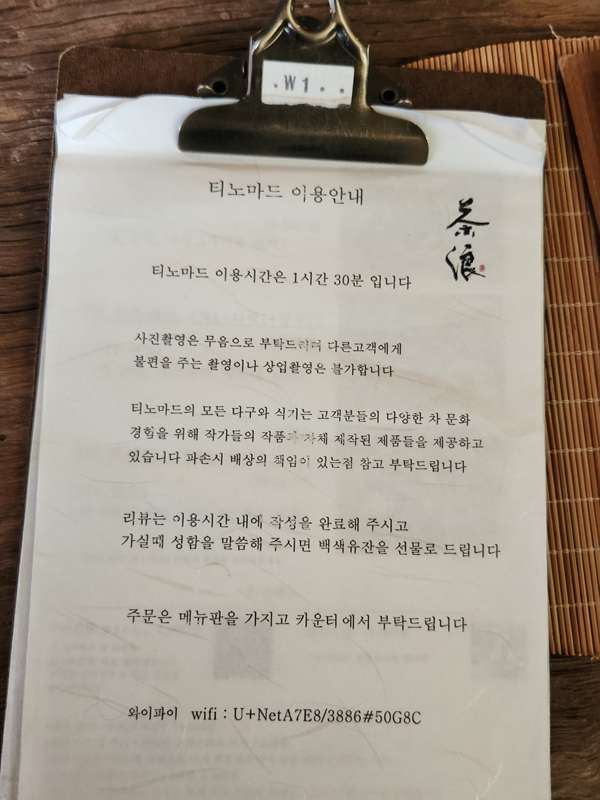 .W1..
티노마드 이용안내
茶浪
티노마드 이용시간은 1시간 30분 입니다
사진촬영은 무음으로 부탁드리며 다른고객에게
불편을 주는 촬영이나 상업촬영은 불가합니다
티노마드의 모든 다구와 식기는 고객분들의 다양한 차 문화
경험을 위해 작가들의 작품과 자체 제작된 제품들을 제공하고
있습니다 파손시 배상의 책임이 있는점 참고 부탁드립니다
리뷰는 이용시간 내에 작성을 완료해 주시고
가실때 성함을 말씀해 주시면 백색유잔을 선물로 드립니다
주문은 메뉴판을 가지고 카운터에서 부탁드립니다
와이파이 wifi : U+NetA7E8/3886#50G8C